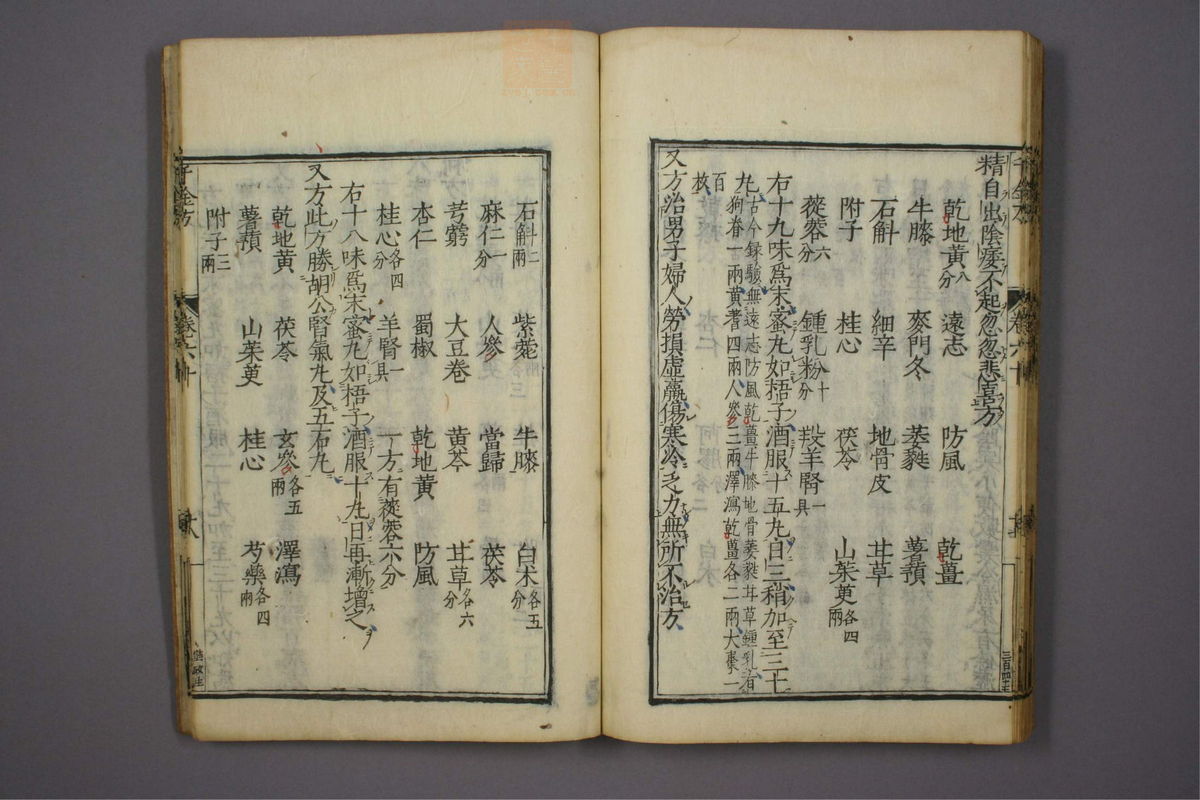 精自出陰痿不起忽忽悲喜方
乾地黃八分 遠志 防風 乾薑
牛膝 麥門冬 葳蕤 薯蕷
石斛 細辛 地骨皮 甘草
附子 桂心 茯苓 山茱萸各四兩
蓯蓉六分 鍾乳粉十分 羖羊腎一具
右十九味爲末蜜丸如梧子酒服十五丸日三稍加至三十
丸古今録驗無遠志防風乾薑牛膝地骨葳蕤甘草鍾乳有
狗脊一兩黃耆四兩人參三兩澤瀉乾薑各二兩大棗一
百枚
又方治男子婦人勞損虛羸傷寒冷乏力無所不治方
石斛二兩 紫菀 牛膝 白朮各五分
麻仁一分 人參 當歸 茯苓
芎藭 大豆卷 黃芩 甘草各六分
杏仁 蜀椒 乾地黃 防風
桂心各四分 羊腎一具 一方有蓯蓉六分
右十八味爲末蜜丸如梧子酒服十丸日再漸增之
又方此方勝胡公腎氣丸及五石丸
乾地黃 茯苓 玄參各五兩 澤瀉
薯蕷 山茱萸 桂心 芍藥各四兩
附子三兩
千金方 卷六十